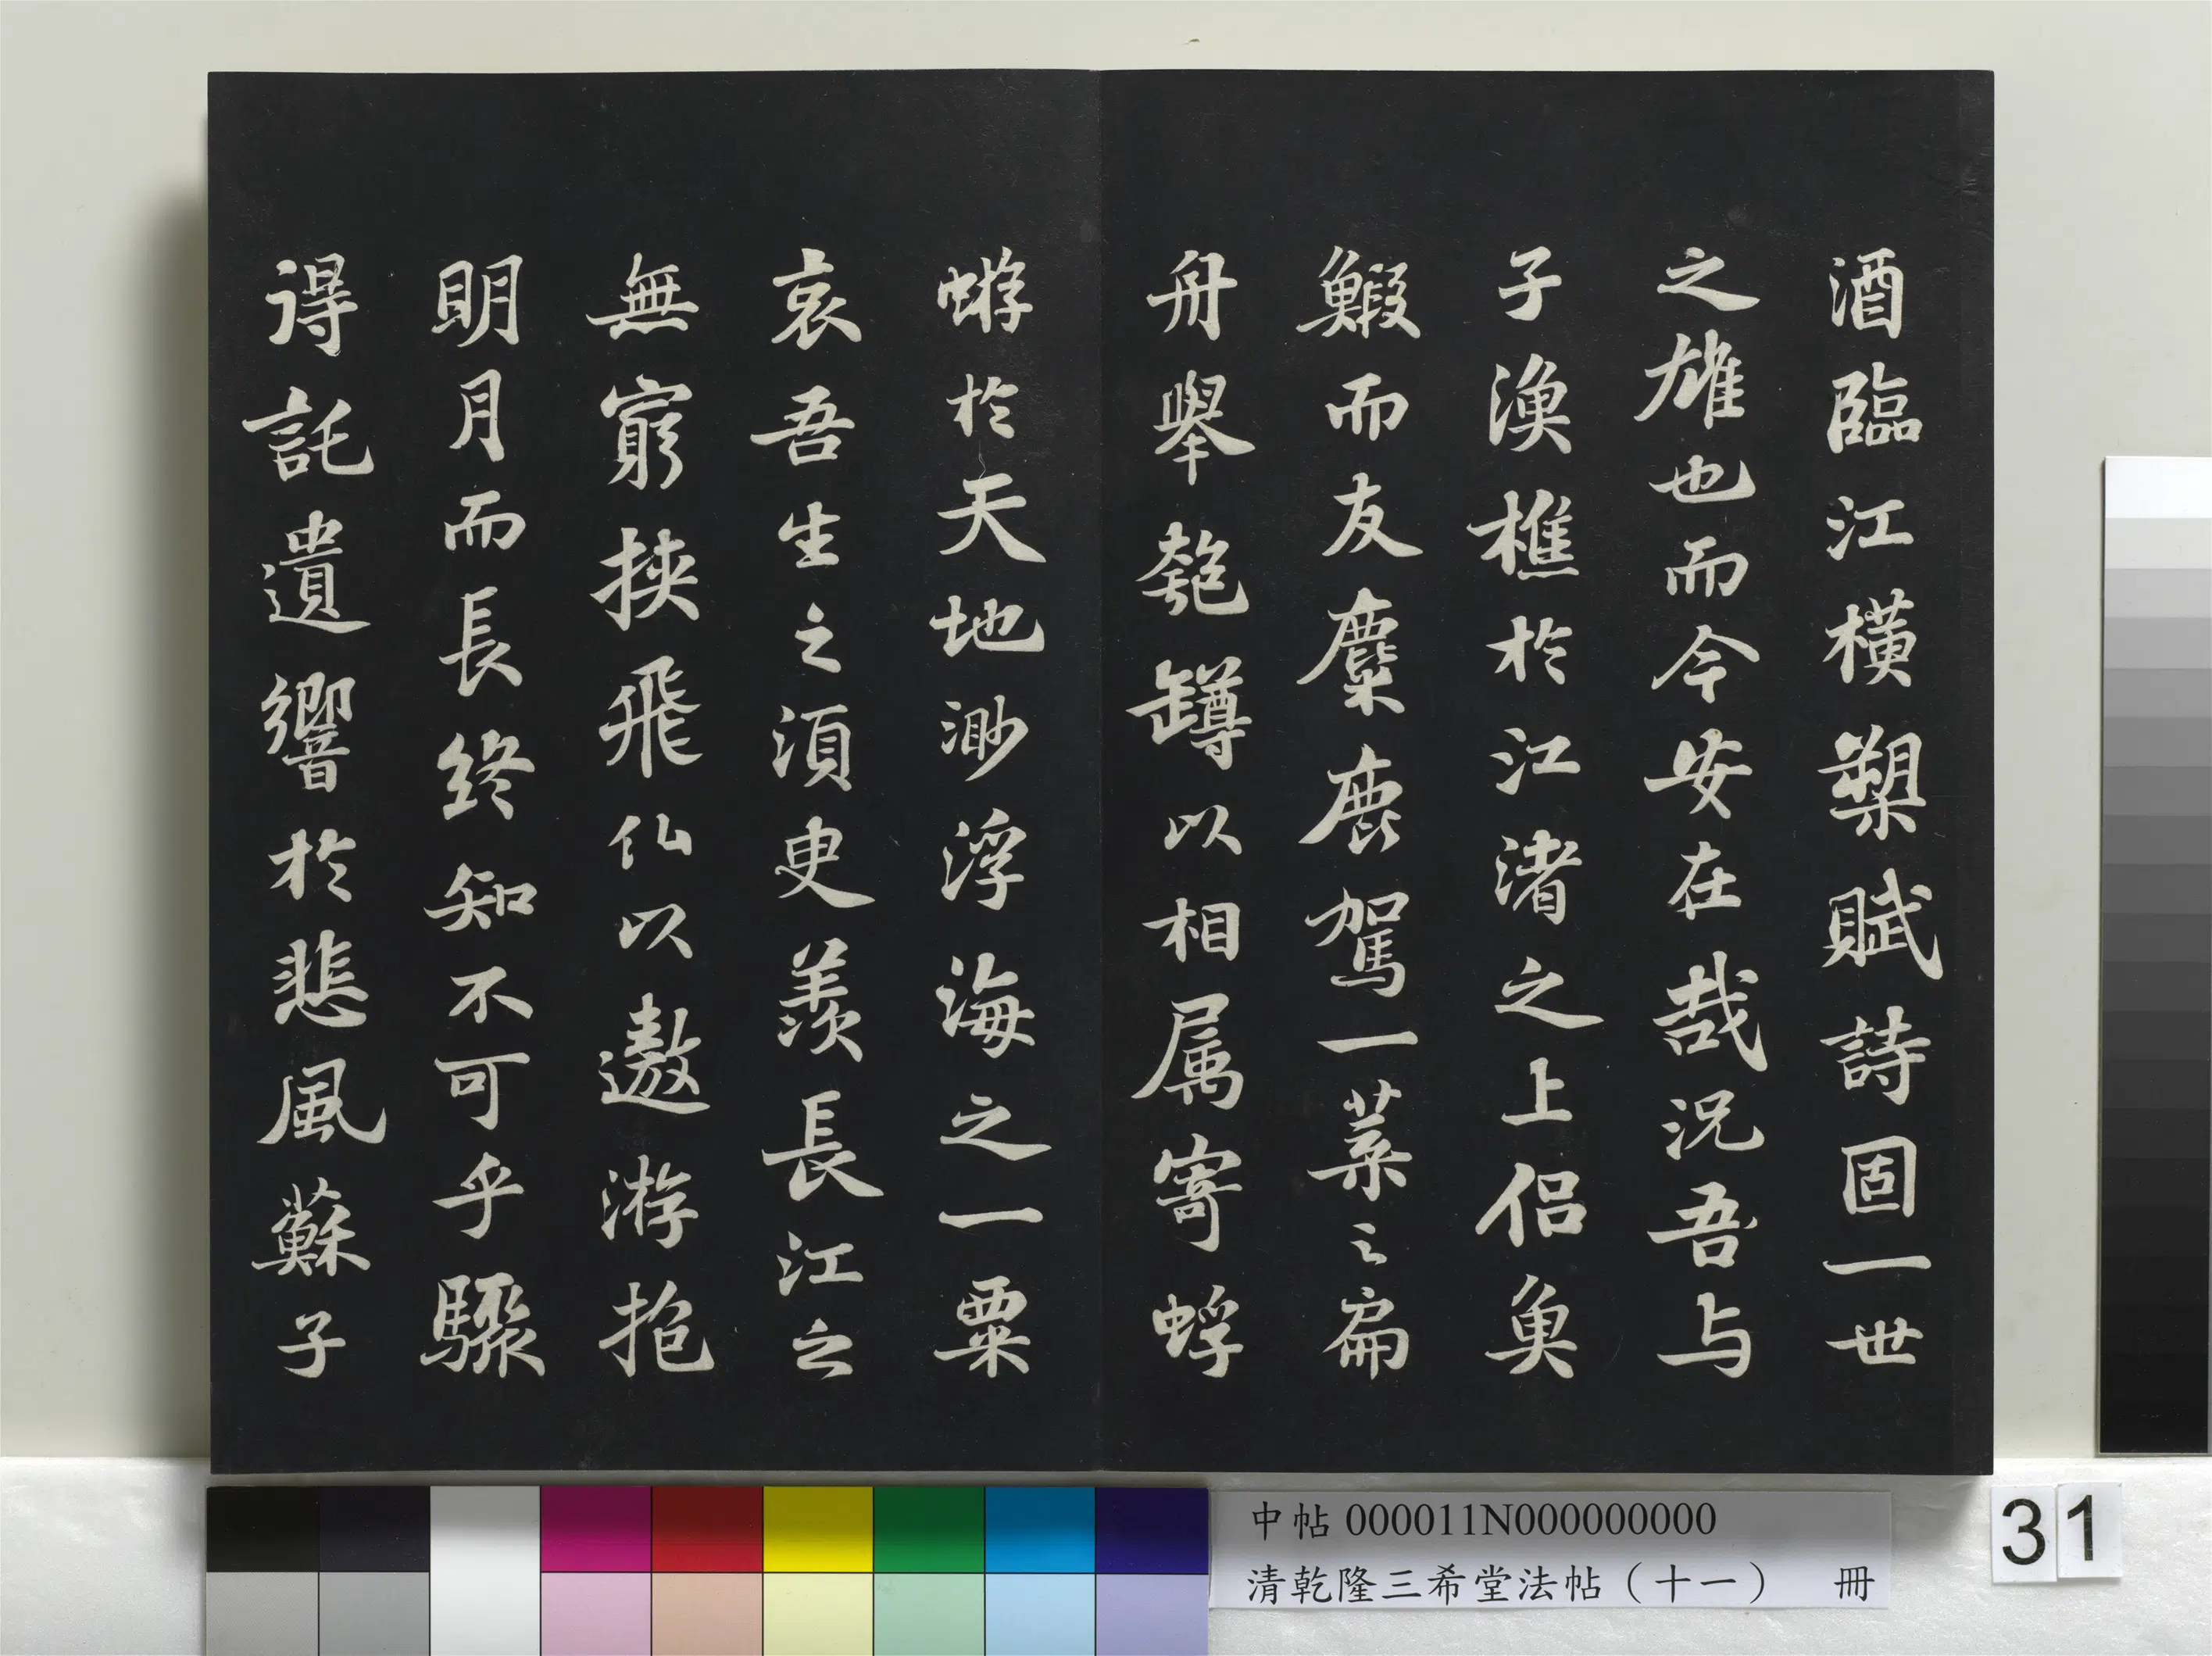 酒臨江橫槊賦詩固一世
之雄也而今安在哉況吾与
子漁樵於江渚之上侶魚
鰕而友麋鹿駕一葉之扁
舟舉匏罇以相属寄蜉
蝣於天地渺浮海之一粟
哀吾生之須臾羨長江之
無窮挾飛仙以遨游抱
明月而長終知不可乎驟
得託遺響於悲風蘇子
中帖 000011N000000000
清乾隆三希堂法帖（十一） 冊
31